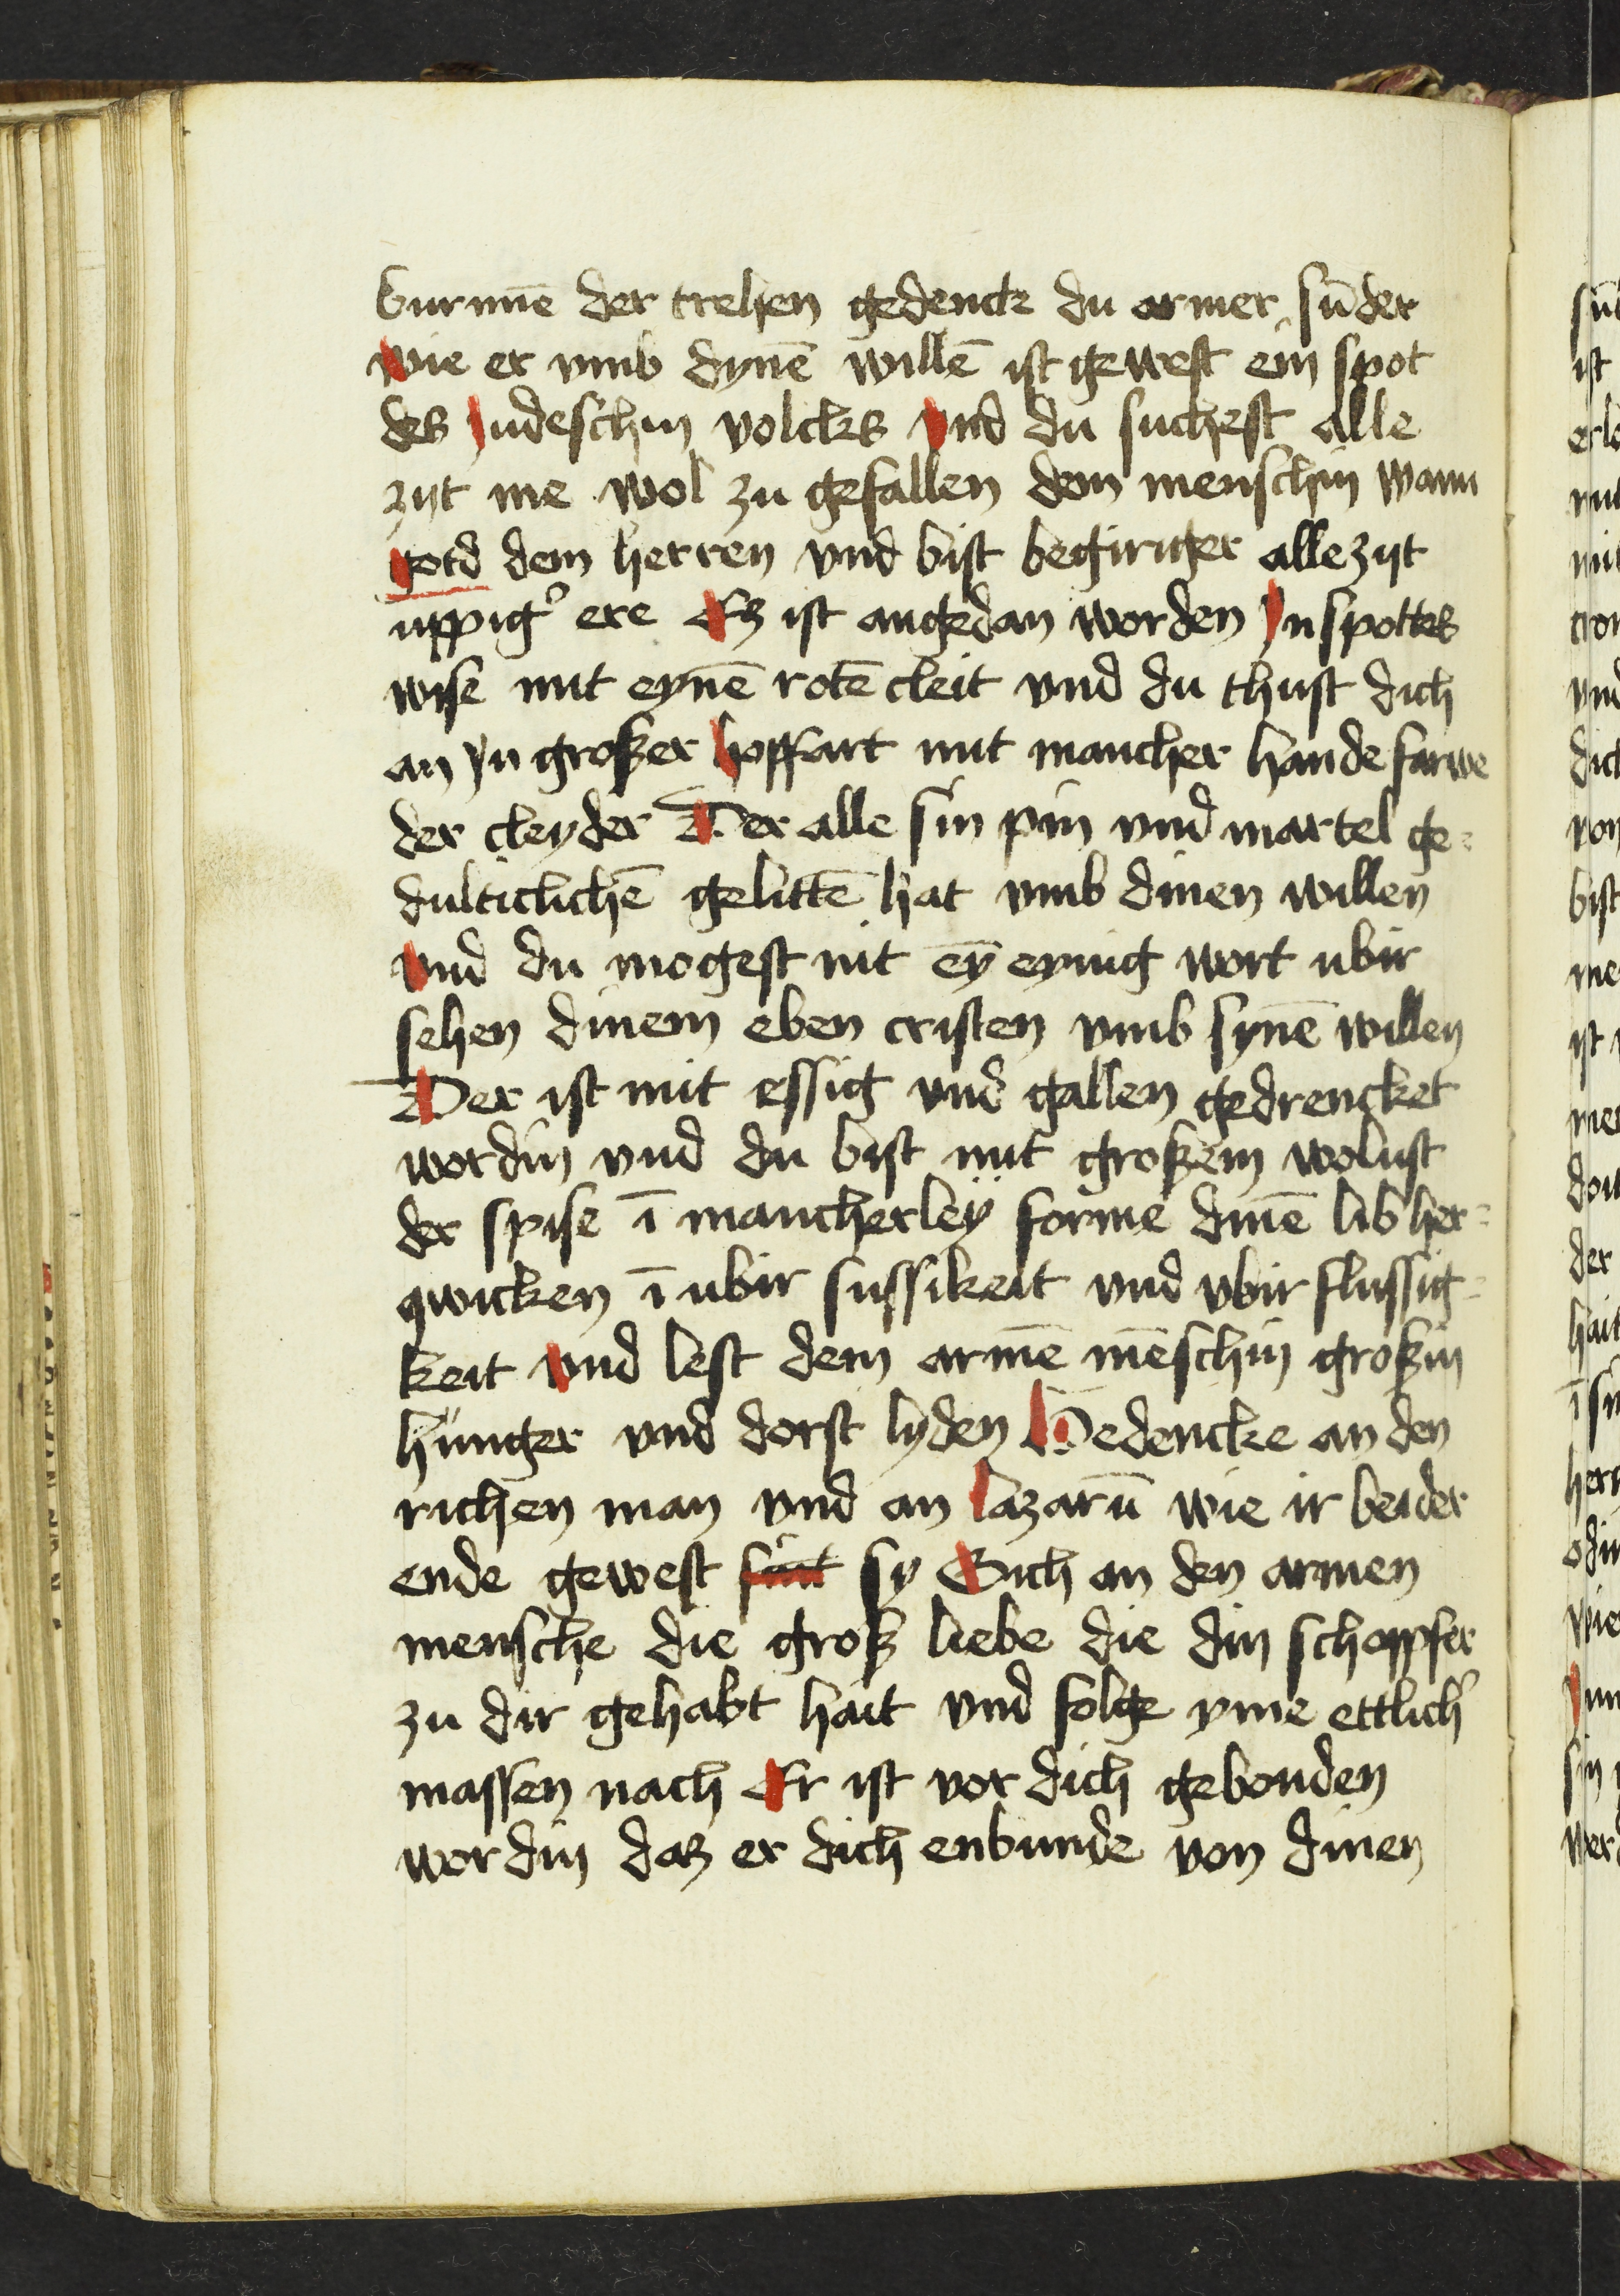 burnnē der trehen gedenck du armer sūder
wie er vmb dynē willē ist gewest ein spot
des judeschin volcks vnd du suchest alle
zijt me wol zu gefallen den menschin wann
gotd dem herren vnd bist begiriger alle zijt
uppig' ere Er ist angedan worden yn spottes
wise mit eynē rotē cleit vnd du thust dich
an yn großer hoffart mit mancher hande farwe
der cleyder Der alle sin pin vnd martel ge=
dulticlichē gelittē hat vmb dinen willen
vnd du mogest nit eȳ eynig wort ubir
sehen dinem eben cristen vmb synē willen
Der ist mit essig vnd gallen gedrencket
wordin vnd du bist mit großem wolust
der spise ī mancherleÿ forme dinē lib her=
qwicken ī ubir sussikeit vnd vbir flussig=
keit vnd lest dem armē mēschin großin
hunger vnd dorst lyden Gedencke an den
richen man vnd an lazarū wie ir beider
ende gewest sint sy Sich an den armen
mensche die groß liebe die din schoppfer
zu dir gehabt hait vnd folge yme ettlich'
massen nach Er ist vor dich gebonden
wordin daß er dich enbunde von dinen